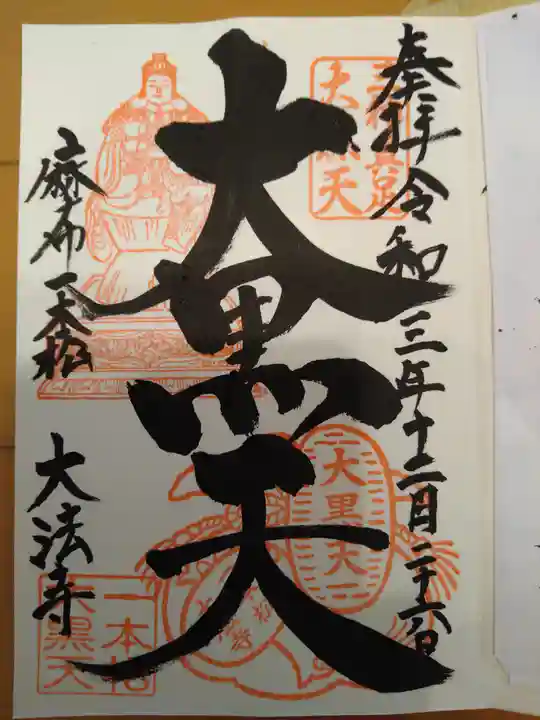 奉拝 令和三年十二月二十六日
大黒天
大黒天
麻布一本松
大法寺
一本松
大黒天